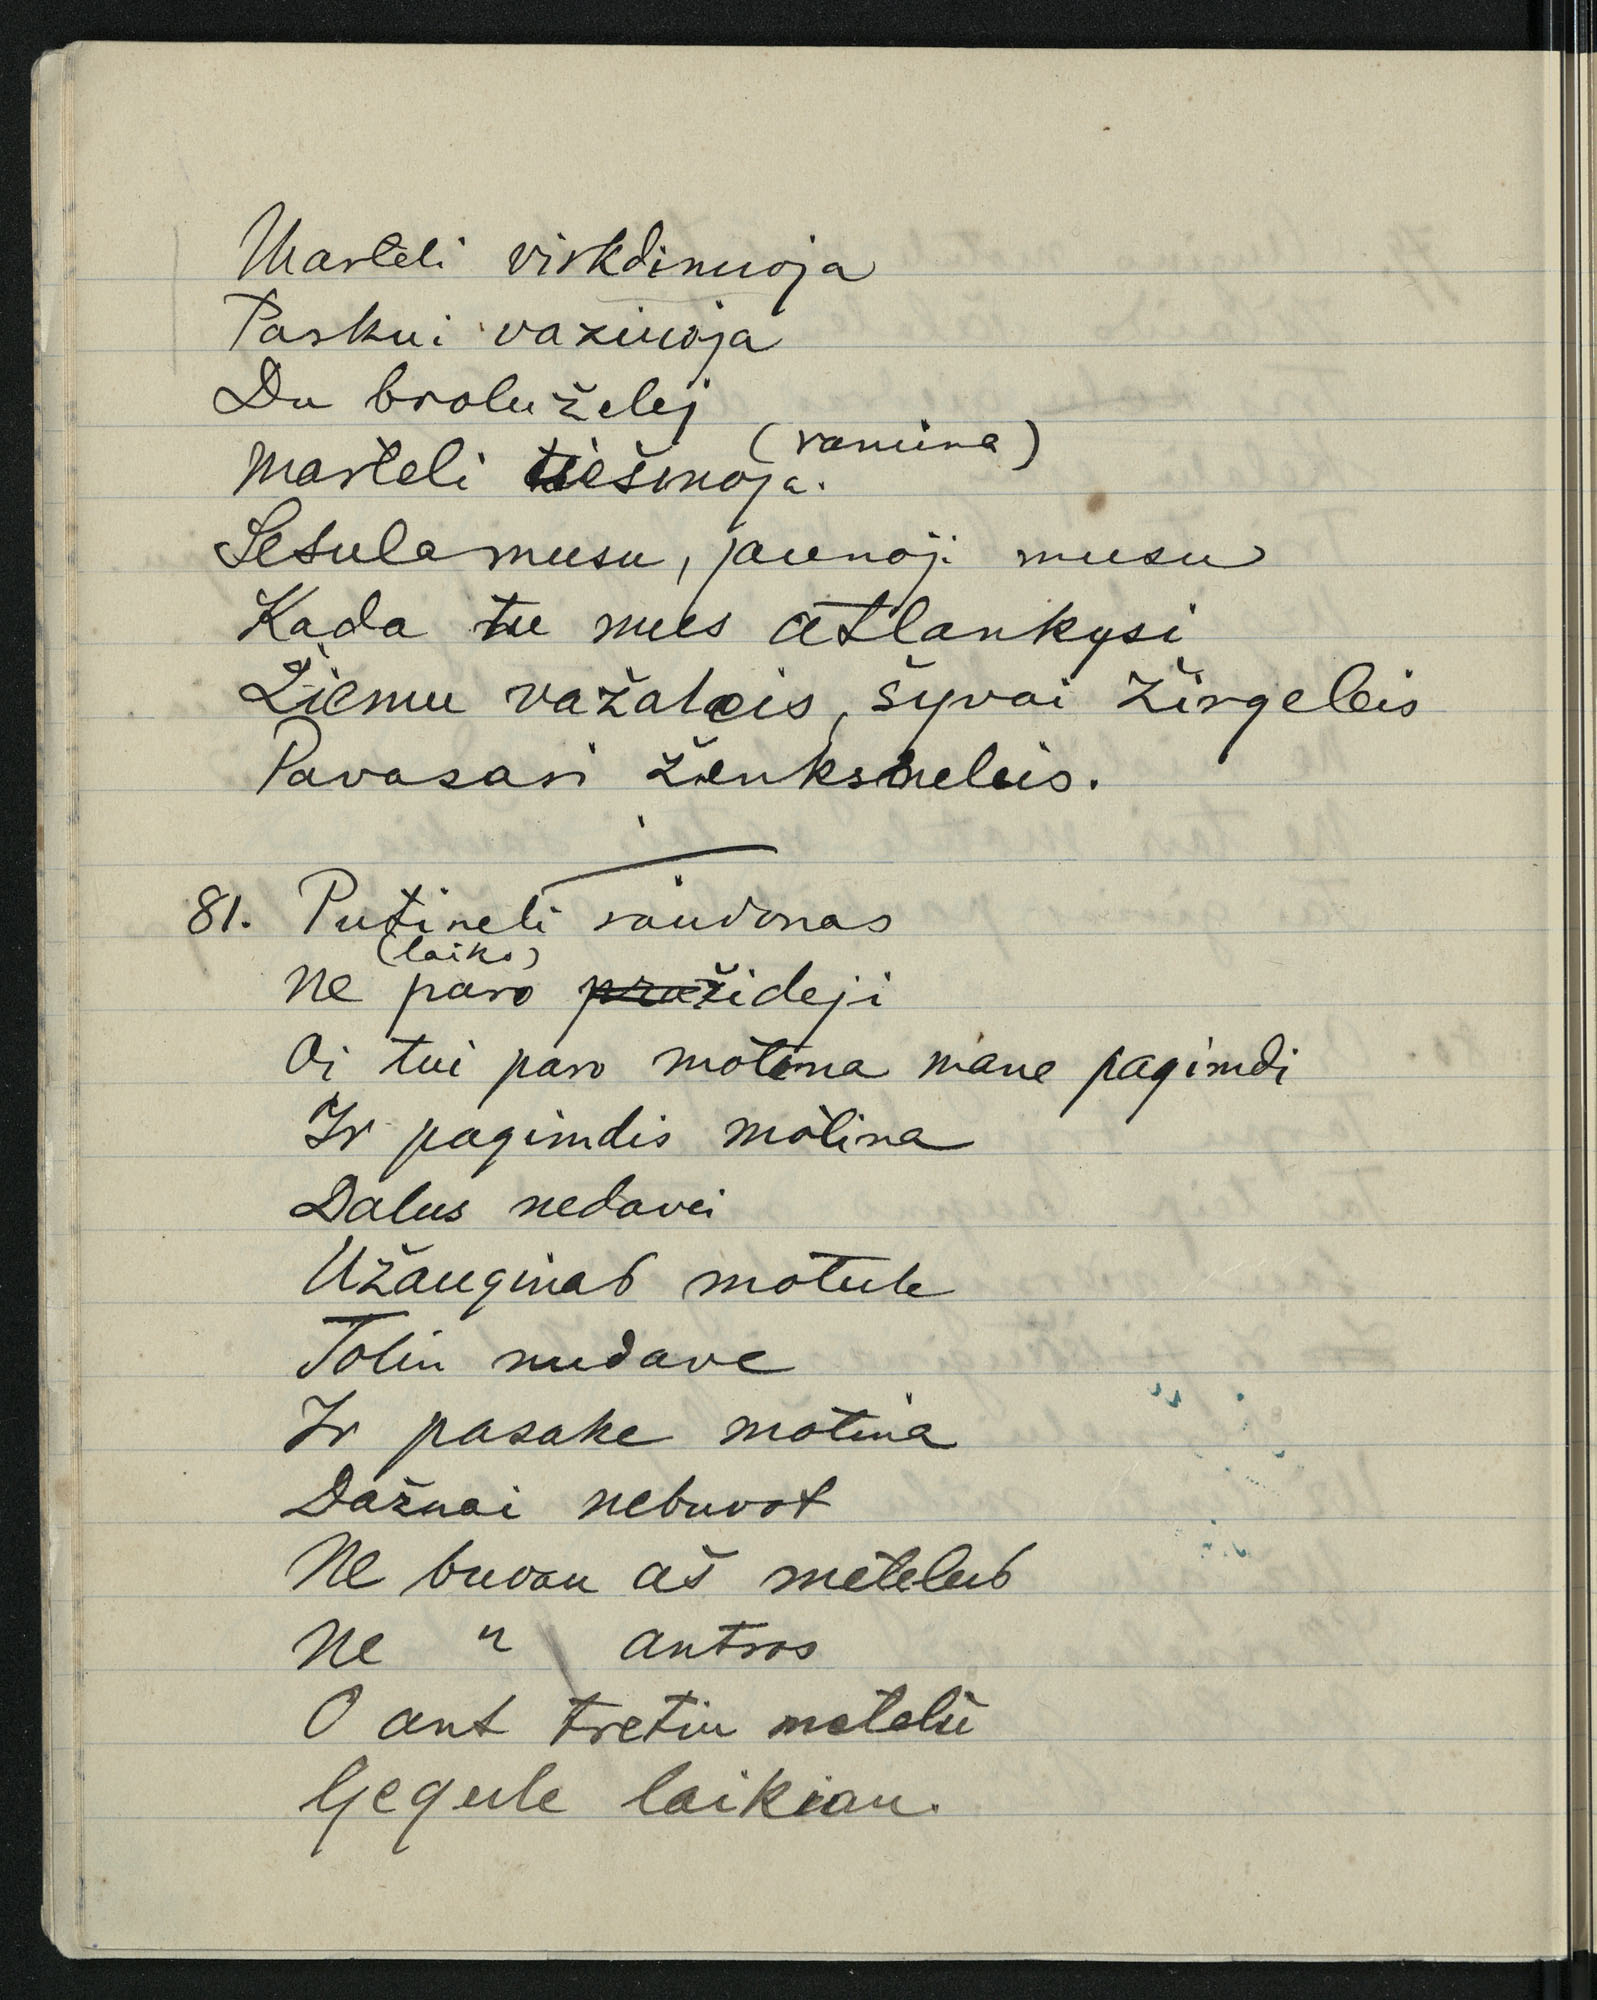 Marteli virkdinuoja
Paskui vaziuoja
Du broluželej
(ramina)
Marteli tiešinoja.
Sesula musu, jaunoji musu
Kada tu mus atlankysi
Žiemu važaleis, šyvai žirgeleis
Pavasari žienksneleis.
81. Putineli raudonas
(laiko)
Ne paro pražideji
Oi tui paro motina mane pagimdi
Ir pagimdis motina
Dalus nedavei
Užauginas motule
Toliu nudave
Ir pasake motina
Dažnai nebuvot
Ne buvau aš metelus
Ne " antros
O ant tretiu metelu
Gegule laikiau.